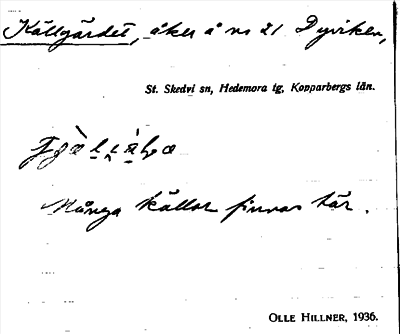 Källgärdet, åker å nr 21 Dyviken,
St. Skedvi sn, Hedemora tg, Kopparbergs län.
Många källor finnas här.
OLLE HILLNER, 1936.